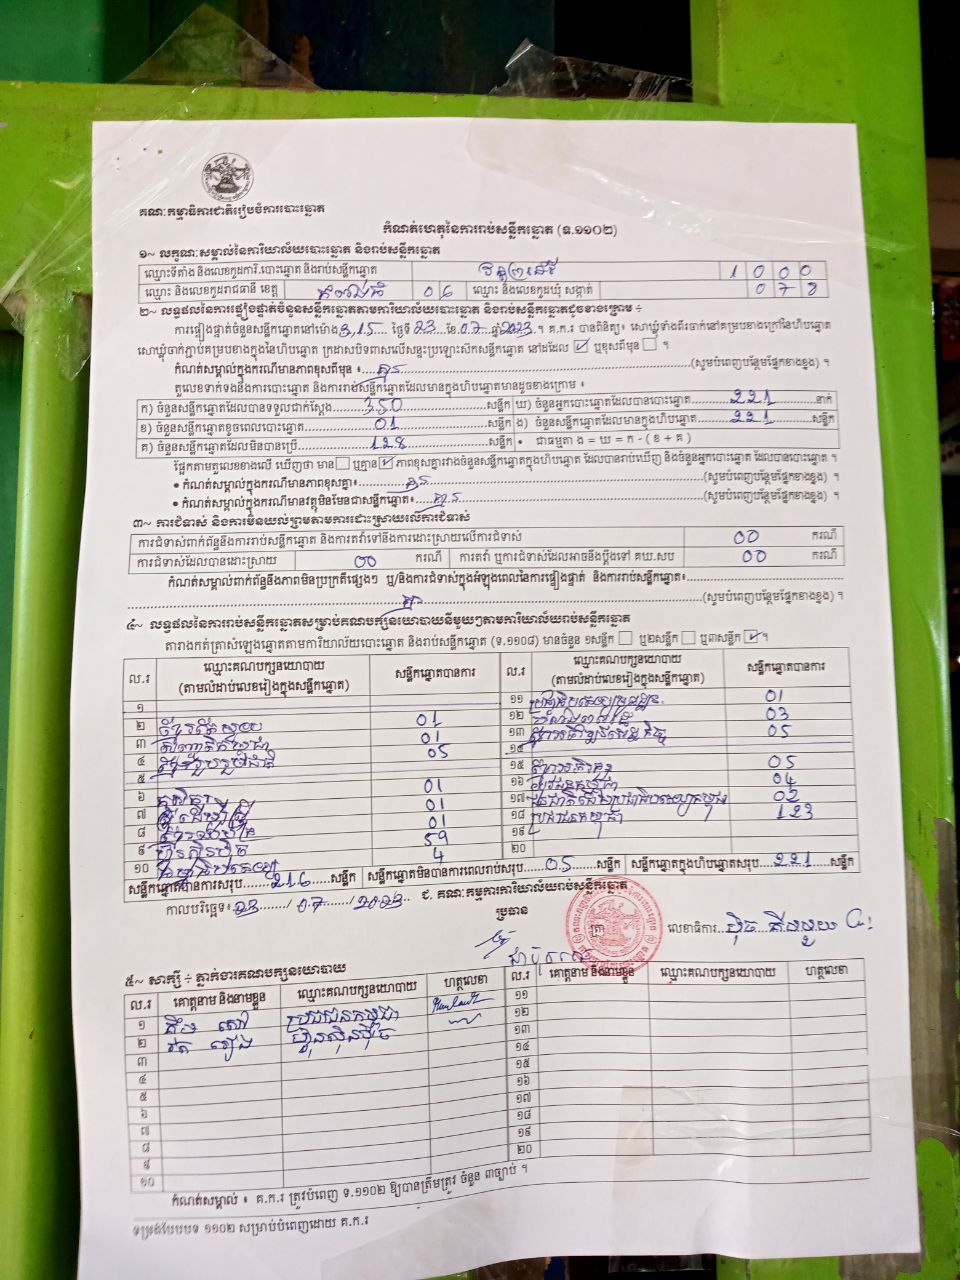 គណៈកម្មាធិការជាតិរៀបចំការបោះឆ្នោត
កំណត់ហេតុនៃការរាប់សន្លឹកឆ្នោត (ទ.១១០២)
១~ លក្ខណៈសម្គាល់នៃការិយាល័យបោះឆ្នោត និងរាប់សន្លឹកឆ្នោត
ឈ្មោះទីតាំង និងលេខកូដការិ.បោះឆ្នោត និងរាប់សន្លឹកឆ្នោត 1 0 0 0
ឈ្មោះ និងលេខកូដរាជធានី ខេត្ត កំពង់ធំ 0 6 ឈ្មោះ និងលេខកូដឃុំ សង្កាត់ 0 7 8
២~ លទ្ធផលនៃការផ្ទៀងផ្ទាត់ចំនួនសន្លឹកឆ្នោតតាមការិយាល័យបោះឆ្នោត និងរាប់សន្លឹកឆ្នោតដូចខាងក្រោម ៖
ការផ្ទៀងផ្ទាត់ចំនួនសន្លឹកឆ្នោតនៅម៉ោង 3,15 ថ្ងៃទី 23 ខែ 07 ឆ្នាំ 2023 ។ គ.ក.រ បានពិនិត្យ៖ សោឃ្លុំទាំងពីរចាក់នៅគម្របខាងក្រៅនៃហិបឆ្នោត
សោឃ្លុំចាក់ភ្ជាប់គម្របខាងក្នុងនៃហិបឆ្នោត ក្រដាសបិទពាសលើសន្ទះប្រឡោះសឹកសន្លឹកឆ្នោត នៅដដែល ☑ ឬខុសពីមុន ☐ ។
កំណត់សម្គាល់ក្នុងករណីមានភាពខុសពីមុន ៖ គ្មាន (សូមបំពេញបន្ថែមផ្នែកខាងខ្នង) ។
តួលេខទាក់ទងនឹងការបោះឆ្នោត និងការរាប់សន្លឹកឆ្នោតដែលមានក្នុងហិបឆ្នោតមានដូចខាងក្រោម ៖
ក) ចំនួនសន្លឹកឆ្នោតដែលបានទទួលជាក់ស្តែង 350 សន្លឹក ឃ) ចំនួនអ្នកបោះឆ្នោតដែលបានបោះឆ្នោត 221 នាក់
ខ) ចំនួនសន្លឹកឆ្នោតខូចពេលបោះឆ្នោត 01 សន្លឹក ង) ចំនួនសន្លឹកឆ្នោតដែលមានក្នុងហិបឆ្នោត 221 សន្លឹក
គ) ចំនួនសន្លឹកឆ្នោតដែលមិនបានប្រើ 128 សន្លឹក • ជាធម្មតា ង = ឃ = ក - ( ខ + គ )
ផ្អែកតាមតួលេខខាងលើ ឃើញថា មាន ☐ ឬគ្មាន ☑ ភាពខុសគ្នារវាងចំនួនសន្លឹកឆ្នោតក្នុងហិបឆ្នោត ដែលបានរាប់ឃើញ និងចំនួនអ្នកបោះឆ្នោត ដែលបានបោះឆ្នោត ។
• កំណត់សម្គាល់ក្នុងករណីមានភាពខុសគ្នា៖ គ្មាន (សូមបំពេញបន្ថែមផ្នែកខាងខ្នង) ។
• កំណត់សម្គាល់ក្នុងករណីមានវត្ថុមិនមែនជាសន្លឹកឆ្នោត៖ គ្មាន (សូមបំពេញបន្ថែមផ្នែកខាងខ្នង) ។
៣~ ការជំទាស់ និងការមិនយល់ព្រមតាមការដោះស្រាយលើការជំទាស់
ការជំទាស់ពាក់ព័ន្ធនឹងការរាប់សន្លឹកឆ្នោត និងការតវ៉ាទៅនឹងការដោះស្រាយលើការជំទាស់ 00 ករណី
ការជំទាស់ដែលបានដោះស្រាយ 00 ករណី ការតវ៉ា ឬការជំទាស់ដែលអាចនឹងប្តឹងទៅ គឃ.សប 00 ករណី
កំណត់សម្គាល់ពាក់ព័ន្ធនឹងភាពមិនប្រក្រតីផ្សេងៗ ឬ/និងការជំទាស់ក្នុងអំឡុងពេលនៃការផ្ទៀងផ្ទាត់ និងការរាប់សន្លឹកឆ្នោត៖
គ្មាន (សូមបំពេញបន្ថែមផ្នែកខាងខ្នង) ។
៤~ លទ្ធផលនៃការរាប់សន្លឹកឆ្នោតសម្រាប់គណបក្សនយោបាយនីមួយៗតាមការិយាល័យរាប់សន្លឹកឆ្នោត
តារាងកត់ត្រាសំឡេងឆ្នោតតាមការិយាល័យបោះឆ្នោត និងរាប់សន្លឹកឆ្នោត (ទ.១១០៨) មានចំនួន ១សន្លឹក ☐ ឬ២សន្លឹក ☐ ឬ៣សន្លឹក ☑ ។
ល.រ ឈ្មោះគណបក្សនយោបាយ (តាមលំដាប់លេខរៀងក្នុងសន្លឹកឆ្នោត) សន្លឹកឆ្នោតបានការ ល.រ ឈ្មោះគណបក្សនយោបាយ (តាមលំដាប់លេខរៀងក្នុងសន្លឹកឆ្នោត) សន្លឹកឆ្នោតបានការ
១ ១១ 01
២ 01 ១២ 03
៣ 01 ១៣ 05
៤ 05 ១៤
៥ ១៥ 05
៦ 01 ១៦ 04
៧ 01 ១៧ 02
៨ 01 ១៨ ប្រជាជនកម្ពុជា 123
៩ ហ្វ៊ុនស៊ិនប៉ិច 59 ១៩
១០ 4 ២០
សន្លឹកឆ្នោតបានការសរុប 216 សន្លឹក សន្លឹកឆ្នោតមិនបានការពេលរាប់សរុប 05 សន្លឹក សន្លឹកឆ្នោតក្នុងហិបឆ្នោតសរុប 221 សន្លឹក
កាលបរិច្ឆេទ៖ 23 / 07 / 2023 ជ. គណៈកម្មការការិយាល័យរាប់សន្លឹកឆ្នោត
ប្រធាន ត្រា លេខាធិការ
៥~ សាក្សី ÷ ភ្នាក់ងារគណបក្សនយោបាយ
ល.រ គោត្តនាម និងនាមខ្លួន ឈ្មោះគណបក្សនយោបាយ ហត្ថលេខា ល.រ គោត្តនាម និងនាមខ្លួន ឈ្មោះគណបក្សនយោបាយ ហត្ថលេខា
១ ប្រជាជនកម្ពុជា ១១
២ ហ្វ៊ុនស៊ិនប៉ិច ១២
៣ ១៣
៤ ១៤
៥ ១៥
៦ ១៦
៧ ១៧
៨ ១៨
៩ ១៩
១០ ២០
កំណត់សម្គាល់ ៖ គ.ក.រ ត្រូវបំពេញ ទ.១១០២ ឱ្យបានត្រឹមត្រូវ ចំនួន ៣ច្បាប់ ។
ទម្រង់បែបបទ ១១០២ សម្រាប់បំពេញដោយ គ.ក.រ